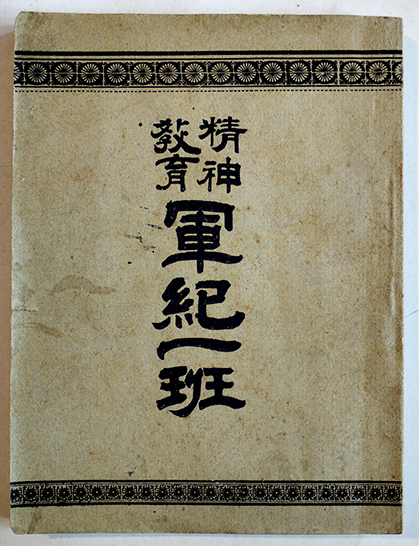 精神
教育
軍紀一班